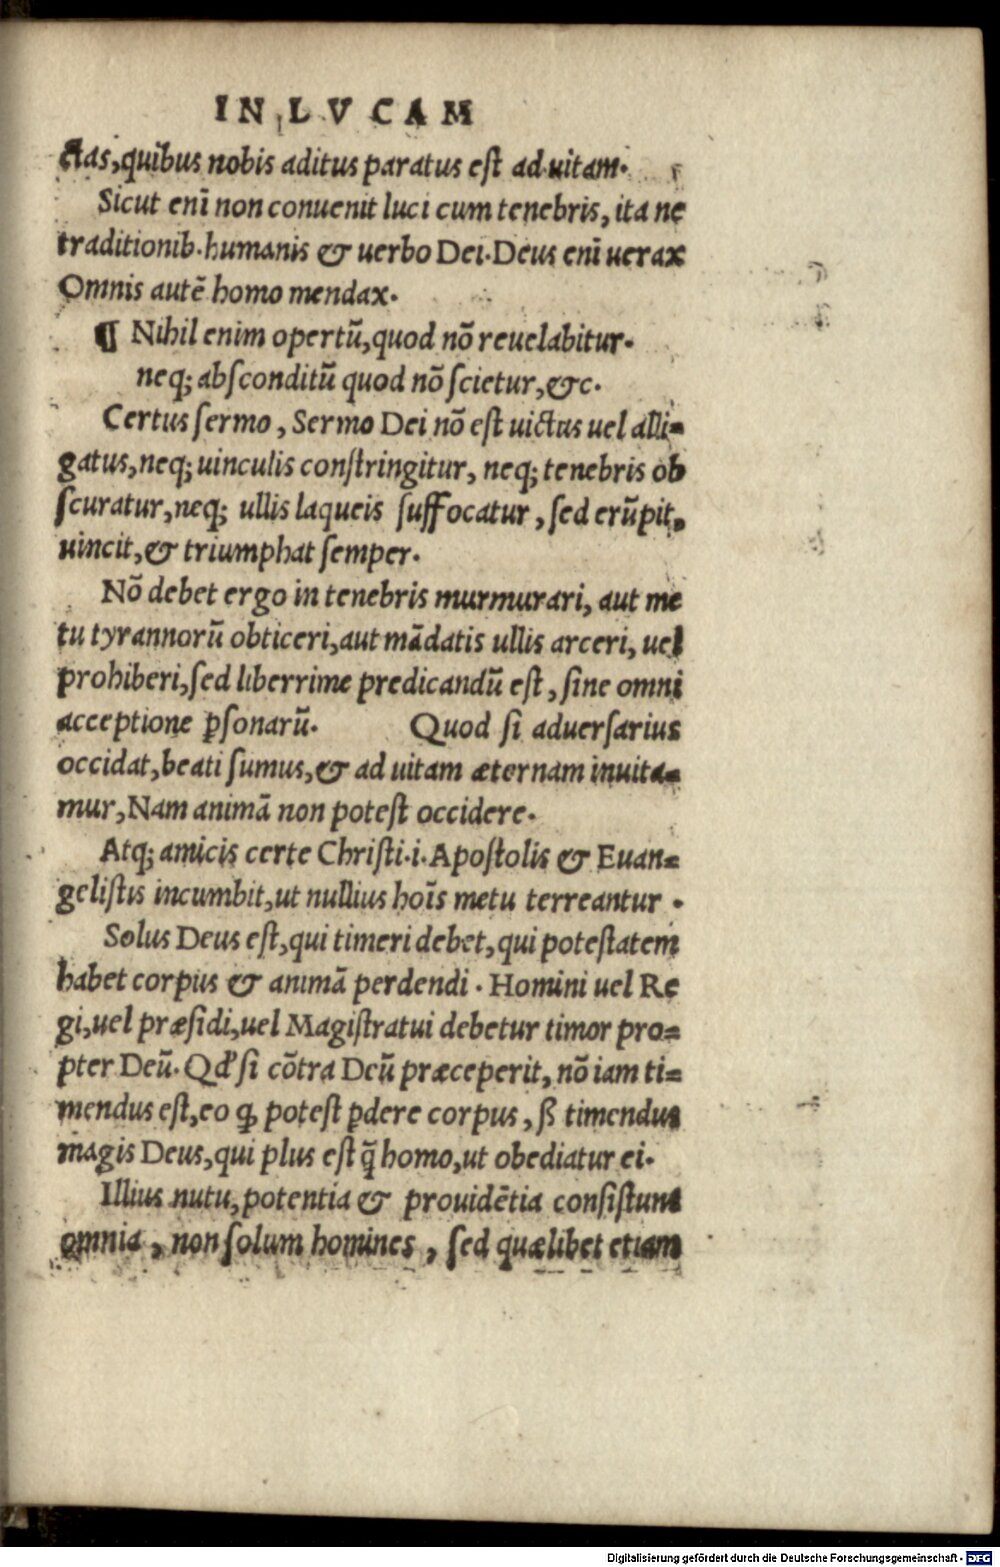 IN LVCAM
ctas, quibus nobis aditus paratus est ad uitam.
Sicut enī non conuenit luci cum tenebris, ita ne
traditionib. humanis & uerbo Dei. Deus enī uerax
Omnis autē homo mendax.
¶ Nihil enim opertū, quod nō reuelabitur.
neq; absconditū quod nō scietur, &c.
Certus sermo, Sermo Dei nō est uictus uel alli=
gatus, neq; uinculis constringitur, neq; tenebris ob
scuratur, neq; ullis laqueis suffocatur, sed erūpit,
uincit, & triumphat semper.
Nō debet ergo in tenebris murmurari, aut me
tu tyrannorū obticeri, aut mādatis ullis arceri, uel
prohiberi, sed liberrime predicandū est, sine omni
acceptione ꝑsonarū. Quod si aduersarius
occidat, beati sumus, & ad uitam æternam inuita=
mur, Nam animā non potest occidere.
Atq; amicis certe Christi .i. Apostolis & Euan=
gelistis incumbit, ut nullius hoīs metu terreantur.
Solus Deus est, qui timeri debet, qui potestatem
habet corpus & animā perdendi. Homini uel Re
gi, uel præsidi, uel Magistratui debetur timor pro=
pter Deū. Qd' si cōtra Deū præceperit, nō iam ti=
mendus est, eo ꝙ potest ꝑdere corpus, ß timendus
magis Deus, qui plus est q̄ homo, ut obediatur ei.
Illius nutu, potentia & prouidētia consistunt
omnia, non solum homines, sed quælibet etiam
Digitalisierung gefördert durch die Deutsche Forschungsgemeinschaft - DFG